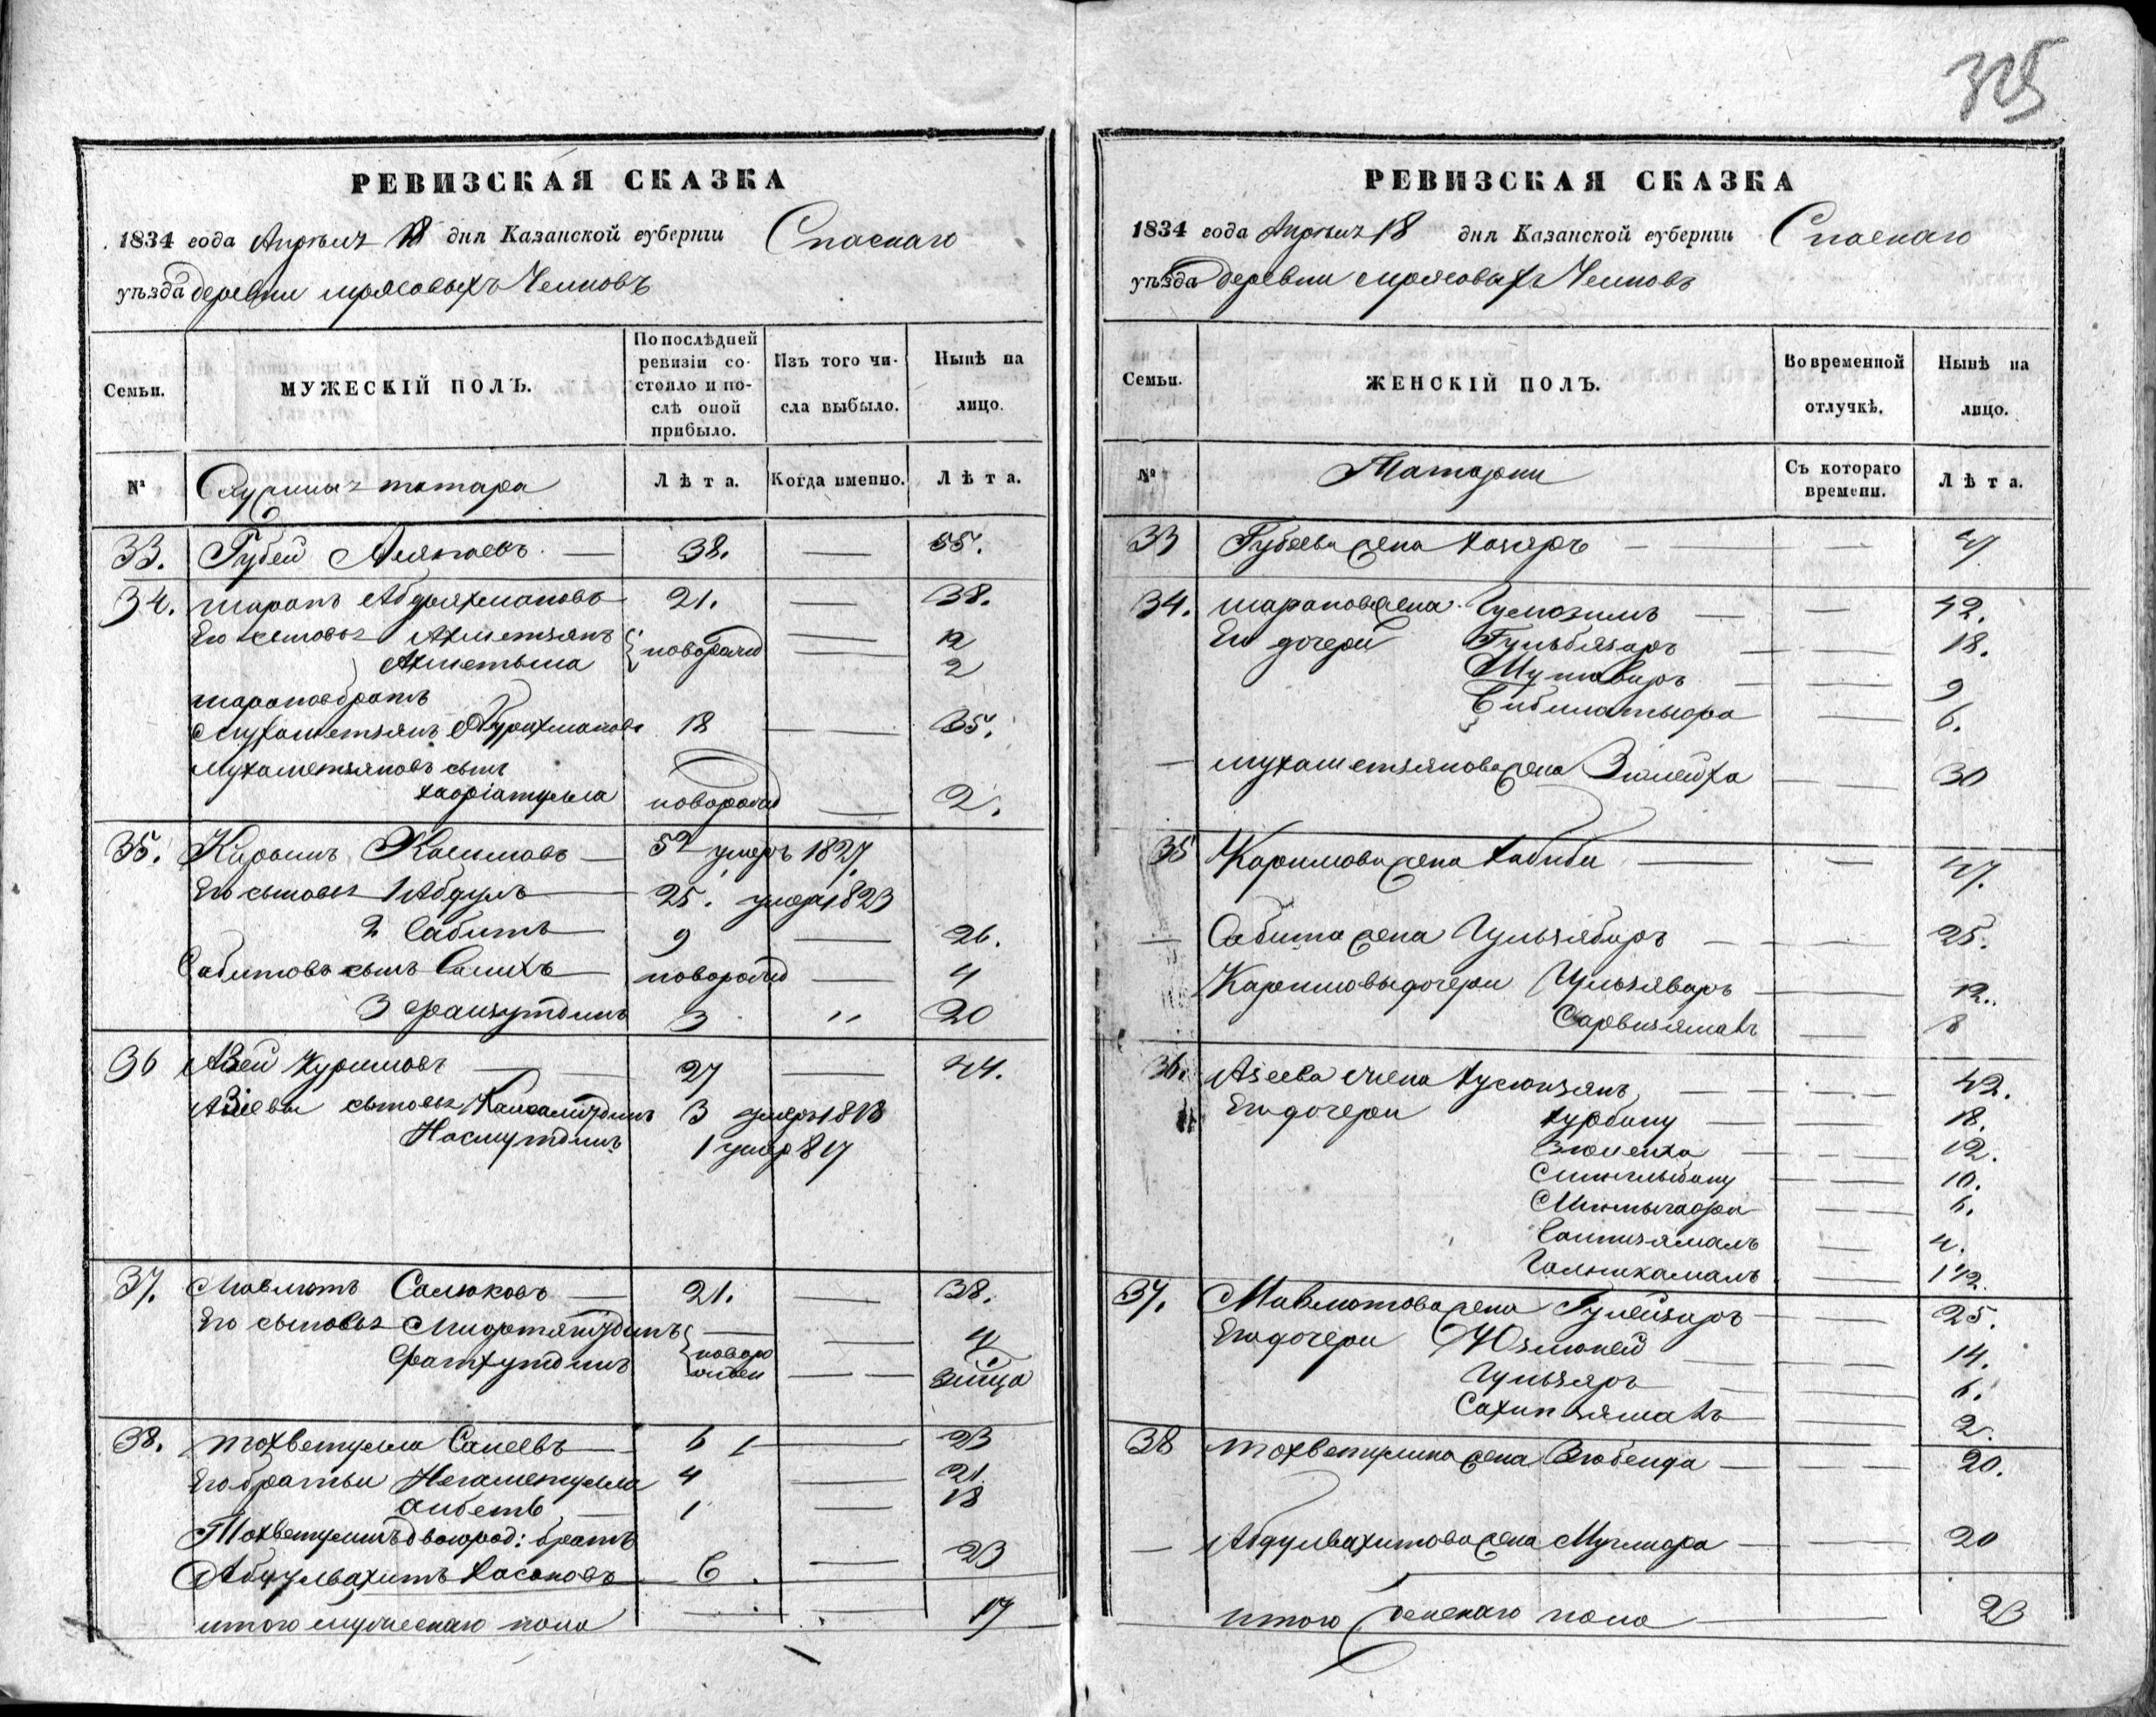 325
РЕВИЗСКАЯ СКАЗКА
1834 года Апрѣля 18 дня Казанской губерніи Спаскаго
уѣзда деревни Мрясовыхъ Челновъ
Семьи.
МУЖЕСКІЙ ПОЛЪ.
По послѣдней ревизіи состояло и послѣ оной прибыло.
Изъ того числа выбыло.
Нынѣ на лицо.
№ татара Лѣта. Когда именно. Лѣта.
33. Губей — 38. — 55.
34. Шарапъ Абдряхмановъ 21. — 38.
Его сыновья Ахметзянъ новорожд — 12
Ахметьша — 2
Шараповъ братъ
Мухаметзянъ Абдряхмановъ 18 — 35.
Мухаметзяновъ сынъ
новорожд — 2.
35. Каримъ Касимовъ — 52 умеръ 1827.
Его сыновья 1 Абдулъ — 25. умеръ 1823
2 Сабитъ — 9 — 26.
Сабитовъ сынъ Салихъ — новорожд — 4
3 Фаизутдинъ 3 " 20
36 Азей Куримовъ — 27 — 44.
Азеевы сыновья 3 умеръ 1818
Насмутдинъ 1 умер 817
37. Мавлютъ Салюковъ — 21. — 38.
Его сыновья — — 4
Фатхутдинъ новорожден — —
38. Тохветулла Сапеевъ — 6 — 23
Его братьи Негаметулла 4 — 21.
Аибетъ — 1 — 18
Тохветуллинъ двоюрод: братъ
Абдулвахитъ Хасановъ 6. — 23
итого мужескаго пола — — 17
РЕВИЗСКАЯ СКАЗКА
1834 года Апрѣля 18 дня Казанской губерніи Спаскаго
уѣзда деревни Мрясовыхъ Челновъ
Семьи.
ЖЕНСКІЙ ПОЛЪ.
Во временной отлучкѣ.
Нынѣ на лицо.
№ Татарки Съ котораго времени. Лѣта.
33 Губеева жена —
34. Шарапова жена — — 42.
Его дочери Гульбязаръ — — 18.
— — 9
— 6.
— Мухаметзянова жена Зюлейха — — 30
35 Каримова жена Хабиба — — 47.
— Сабита жена Гульзябаръ — — 25.
Каримовы дочери Гульзяваръ — — 12.
— 8
36. Азеева жена Хусюнзянъ — — 42.
Его дочери Хурбану — — 18.
Зюлеиха — — 12.
— — 10.
— 6.
— 4.
Гальикамалъ — 1 1/2.
37. Мавлютова жена Гулейзаръ — 25.
Его дочери Юзмюкей — — 14.
Гульзяръ — — 6.
— 2.
38 Тохветуллина жена Зюбейда — — 20.
— Абдулвахитова жена — — 20
итого женскаго пола — — 23